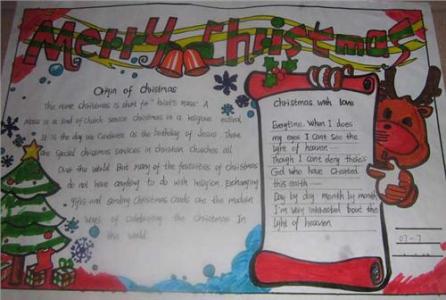 Merry Christmas
Origin of Christmas
The name Christmas is short for "Christ's mass". A
Mass is a kind of Church service. Christmas is a religious
It is the day we celebrate as the birthday of Jesus. There
are special Christmas services in Christian Churches all
Over the world. But many of the festivities of Christmas
do not have anything to do with religion. Exchanging
gifts and sending Christmas cards are the modern
ways of celebrating the Christmas in
the world.
Christmas with love
Everytime When I does
my eyes I Can't See the
light of heaven
Though I can't deny there's
God who have Created
this earth
Day by day month by month
I'm very interested bout the
light of heaven
07-7